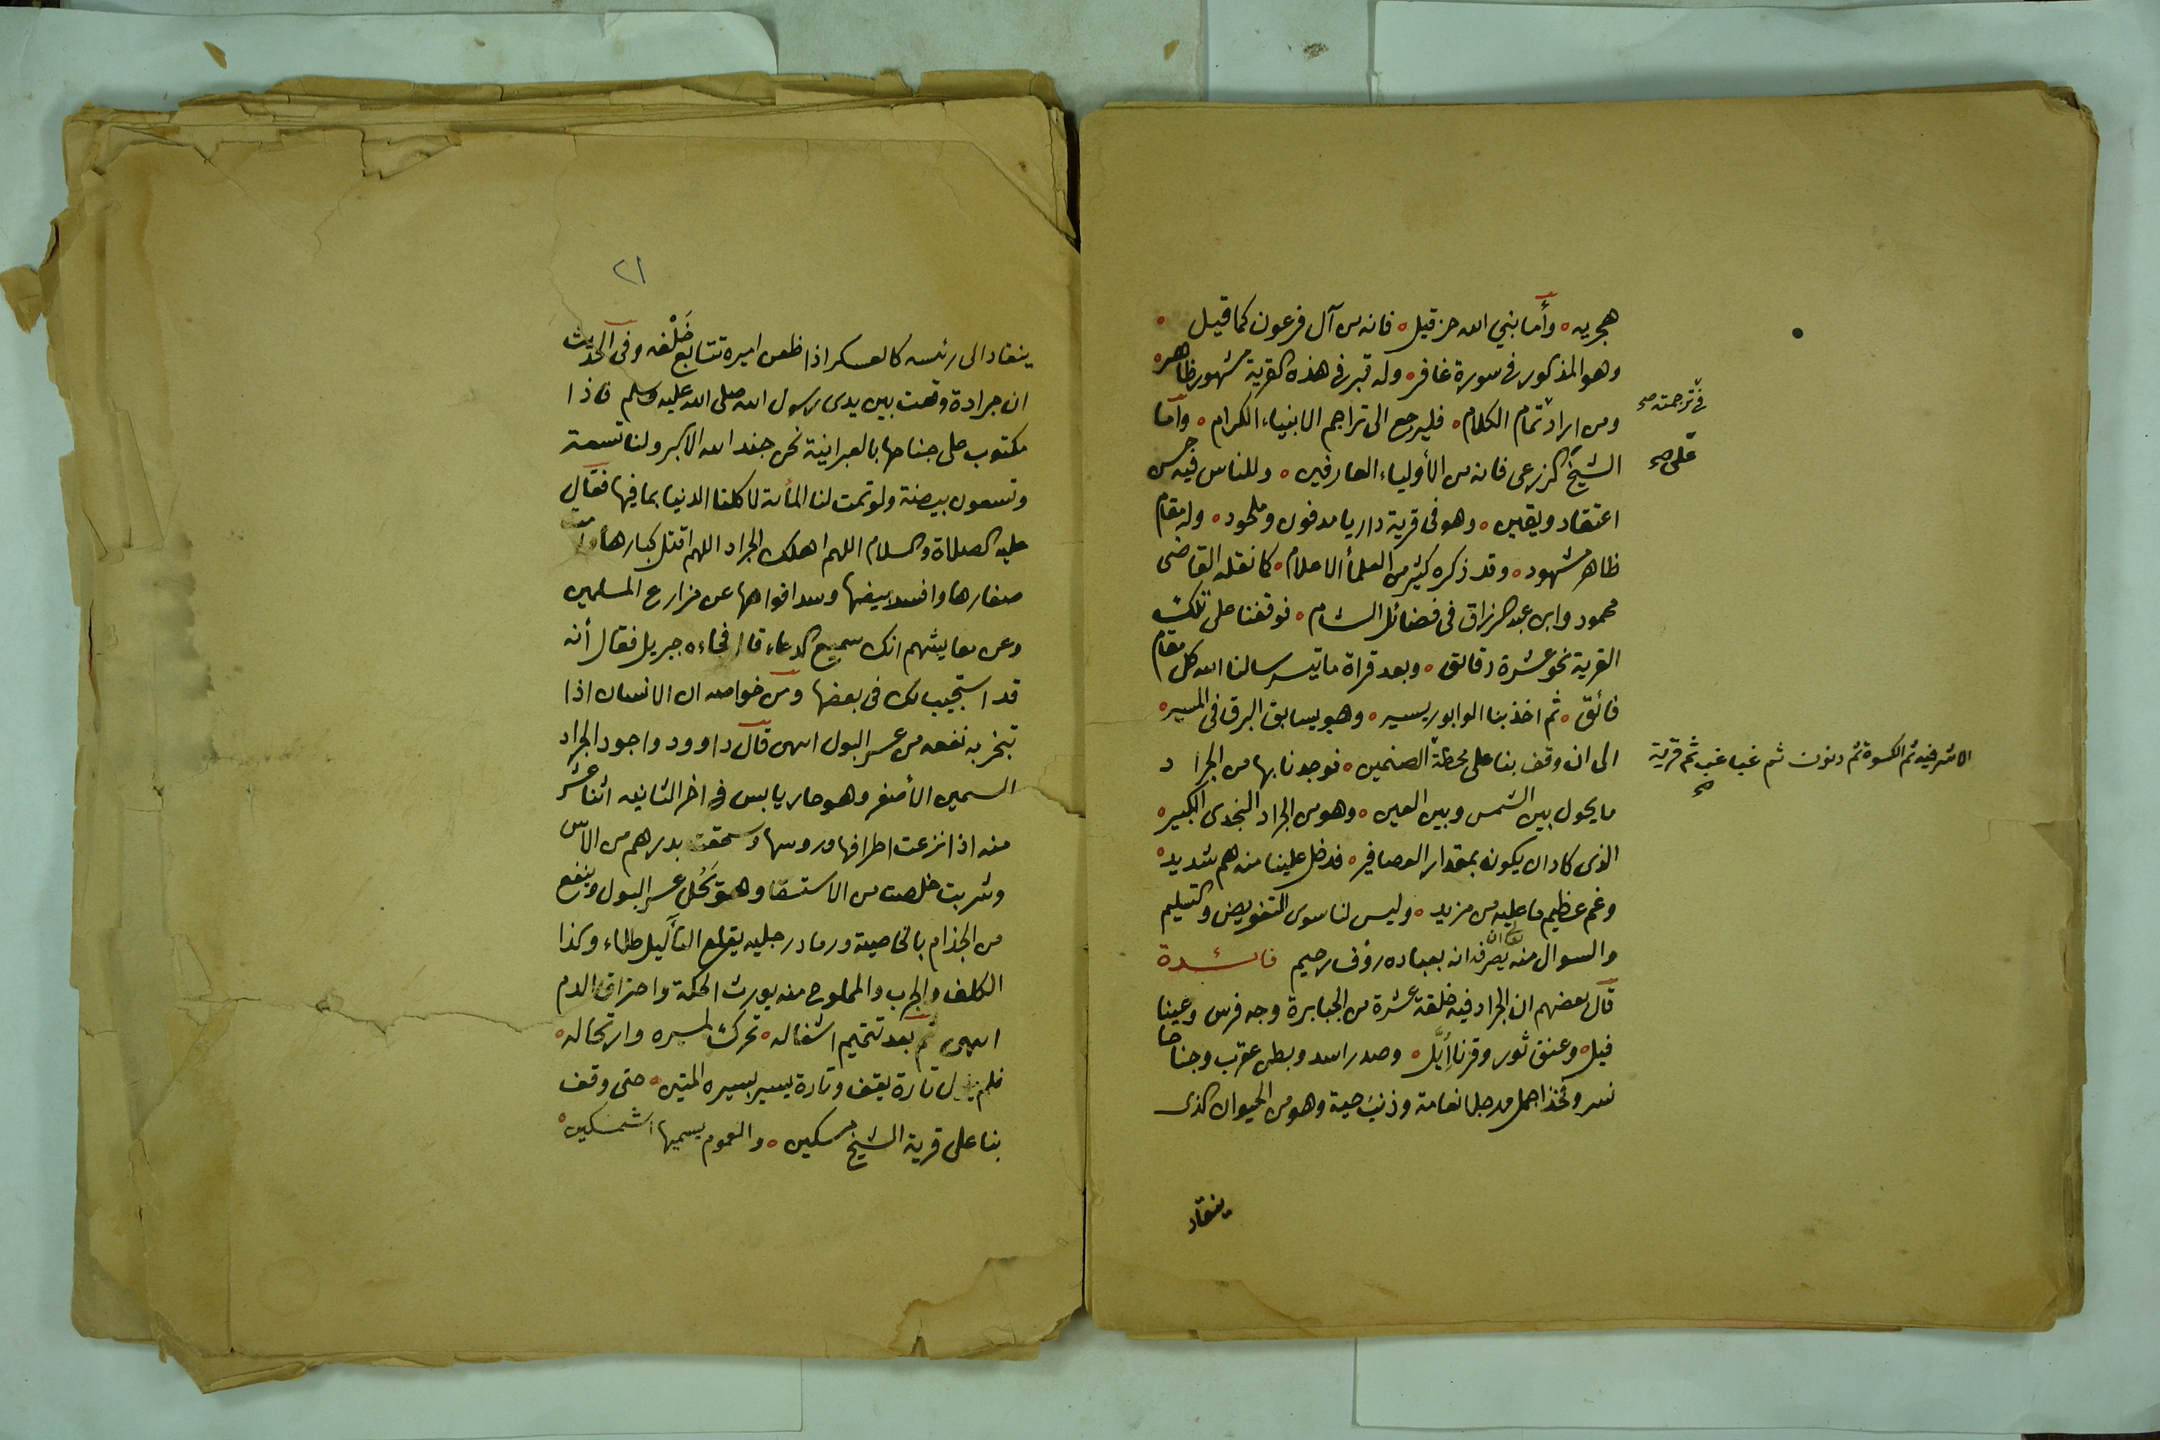 هجريه ٥ وأما بنبي الله حزقيل ٥ فانه من آل فرعون كما قيل ٥
وهو المذكور فى سورة غافر ٥ وله قبر فى هذه القرية مشهور ظاهر ٥
ومن اراد تمام الكلام ٥ فليرجع الى تراجم الانبياء الكرام ٥ واما
فى ترجمته صح
الشيخ الزرعى فانه من الأولياء العارفين ٥ وللناس فيه حسن
على صح
اعتقاد ويقين ٥ وهو فى قرية داريا مدفون وملحود ٥ وله مقام
ظاهر مشهود ٥ وقد ذكره كثير من العلمأ الاعلام ٥ كما نقله القاضى
محمود وابن عبد الرزاق فى فضائل الشام ٥ فوقفنا على تلك
القرية نحو عشرة دقائق ٥ وبعد قراة ما تيسر سالنا الله كل مقام
فائق ٥ ثم اخذ بنا الوابور يسير ٥ وهو يسابق البرق فى المسير ٥
الى ان وقف بنا على محطة الصنمين ٥ فوجدنا بها من الجراد
الاشرفيه ثم الكسوة ثم دنون ثم غباغب ثم قرية صح
ما يحول بين الشمس وبين العين ٥ وهو من الجراد النجدى الكبير ٥
الذى كاد ان يكون بمقدار العصافير ٥ فدخل علينا منه هم شديد ٥
وغم عظيم ما عليه من مزيد ٥ وليس لنا سوى التفويض والتسليم
والسوال منه ان يصرفه انه بعباده رؤف رحيم فائدة
قال بعضهم ان الجراد فيه خلقة عشرة من الجبابرة وجه فرس وعينا
فيل ٥ وعنق ثور وقرنا إيَّل ٥ وصدر اسد وبطن عقرب وجناحا
نسر وفخذا جمل ورجلا نعامة وذنب حية وهو من الحيوان الذى
ينقاد
٢١
ينقاد الى رئيسه كالعسكر اذا ظعن اميره تتابع خَلْفه وفى الحديث
ان جرادة وقعت بين يدى رسول الله صلى الله عليه وسلم فاذا
مكتوب على جناحها بالعبرانية نحن جند الله الاكبر ولنا تسعة
وتسعون بيضة ولو تمت لنا المأة لاكلنا الدنيا بما فيها فقال
عليه الصلاة والسلام اللهم اهلك الجراد اللهم اقتل كبارها وأمت
صغارها وافسد بيضها وسد افواهها عن مزارع المسلمين
وعن معايشهم انك سميع الدعاء قال فجاءه جبريل فقال أنه
قد استجيب لك فى بعضها ومن خواصه ان الانسان اذا
تبخر به نفعه من عسر البول انتهى قال داوود واجود الجراد
السمين الأصفر وهو حار يابس فى اخر الثانيه اثنا عشر
منه اذا نزعت اطرافها وروسها وسحقت بدرهم من الآس
وشربت خلصت من الاستسقا وهو يَحُل عسر البول وينفع
من الجذام بالخاصية ورماد رجليه يقلع الثآليل طلاء وكذا
الكلف والجرب والمملوح منه يورث الحكة واحتراق الدم
انتهى ثم بعد تتميم اشغاله ٥ تحرك لسيره وارتحاله ٥
فلم يزل تارة يقف وتارة يسير بسيره المتين ٥ حتى وقف
بنا على قرية الشيخ مسكين ٥ والعموم يسميها اشمسكين ٥